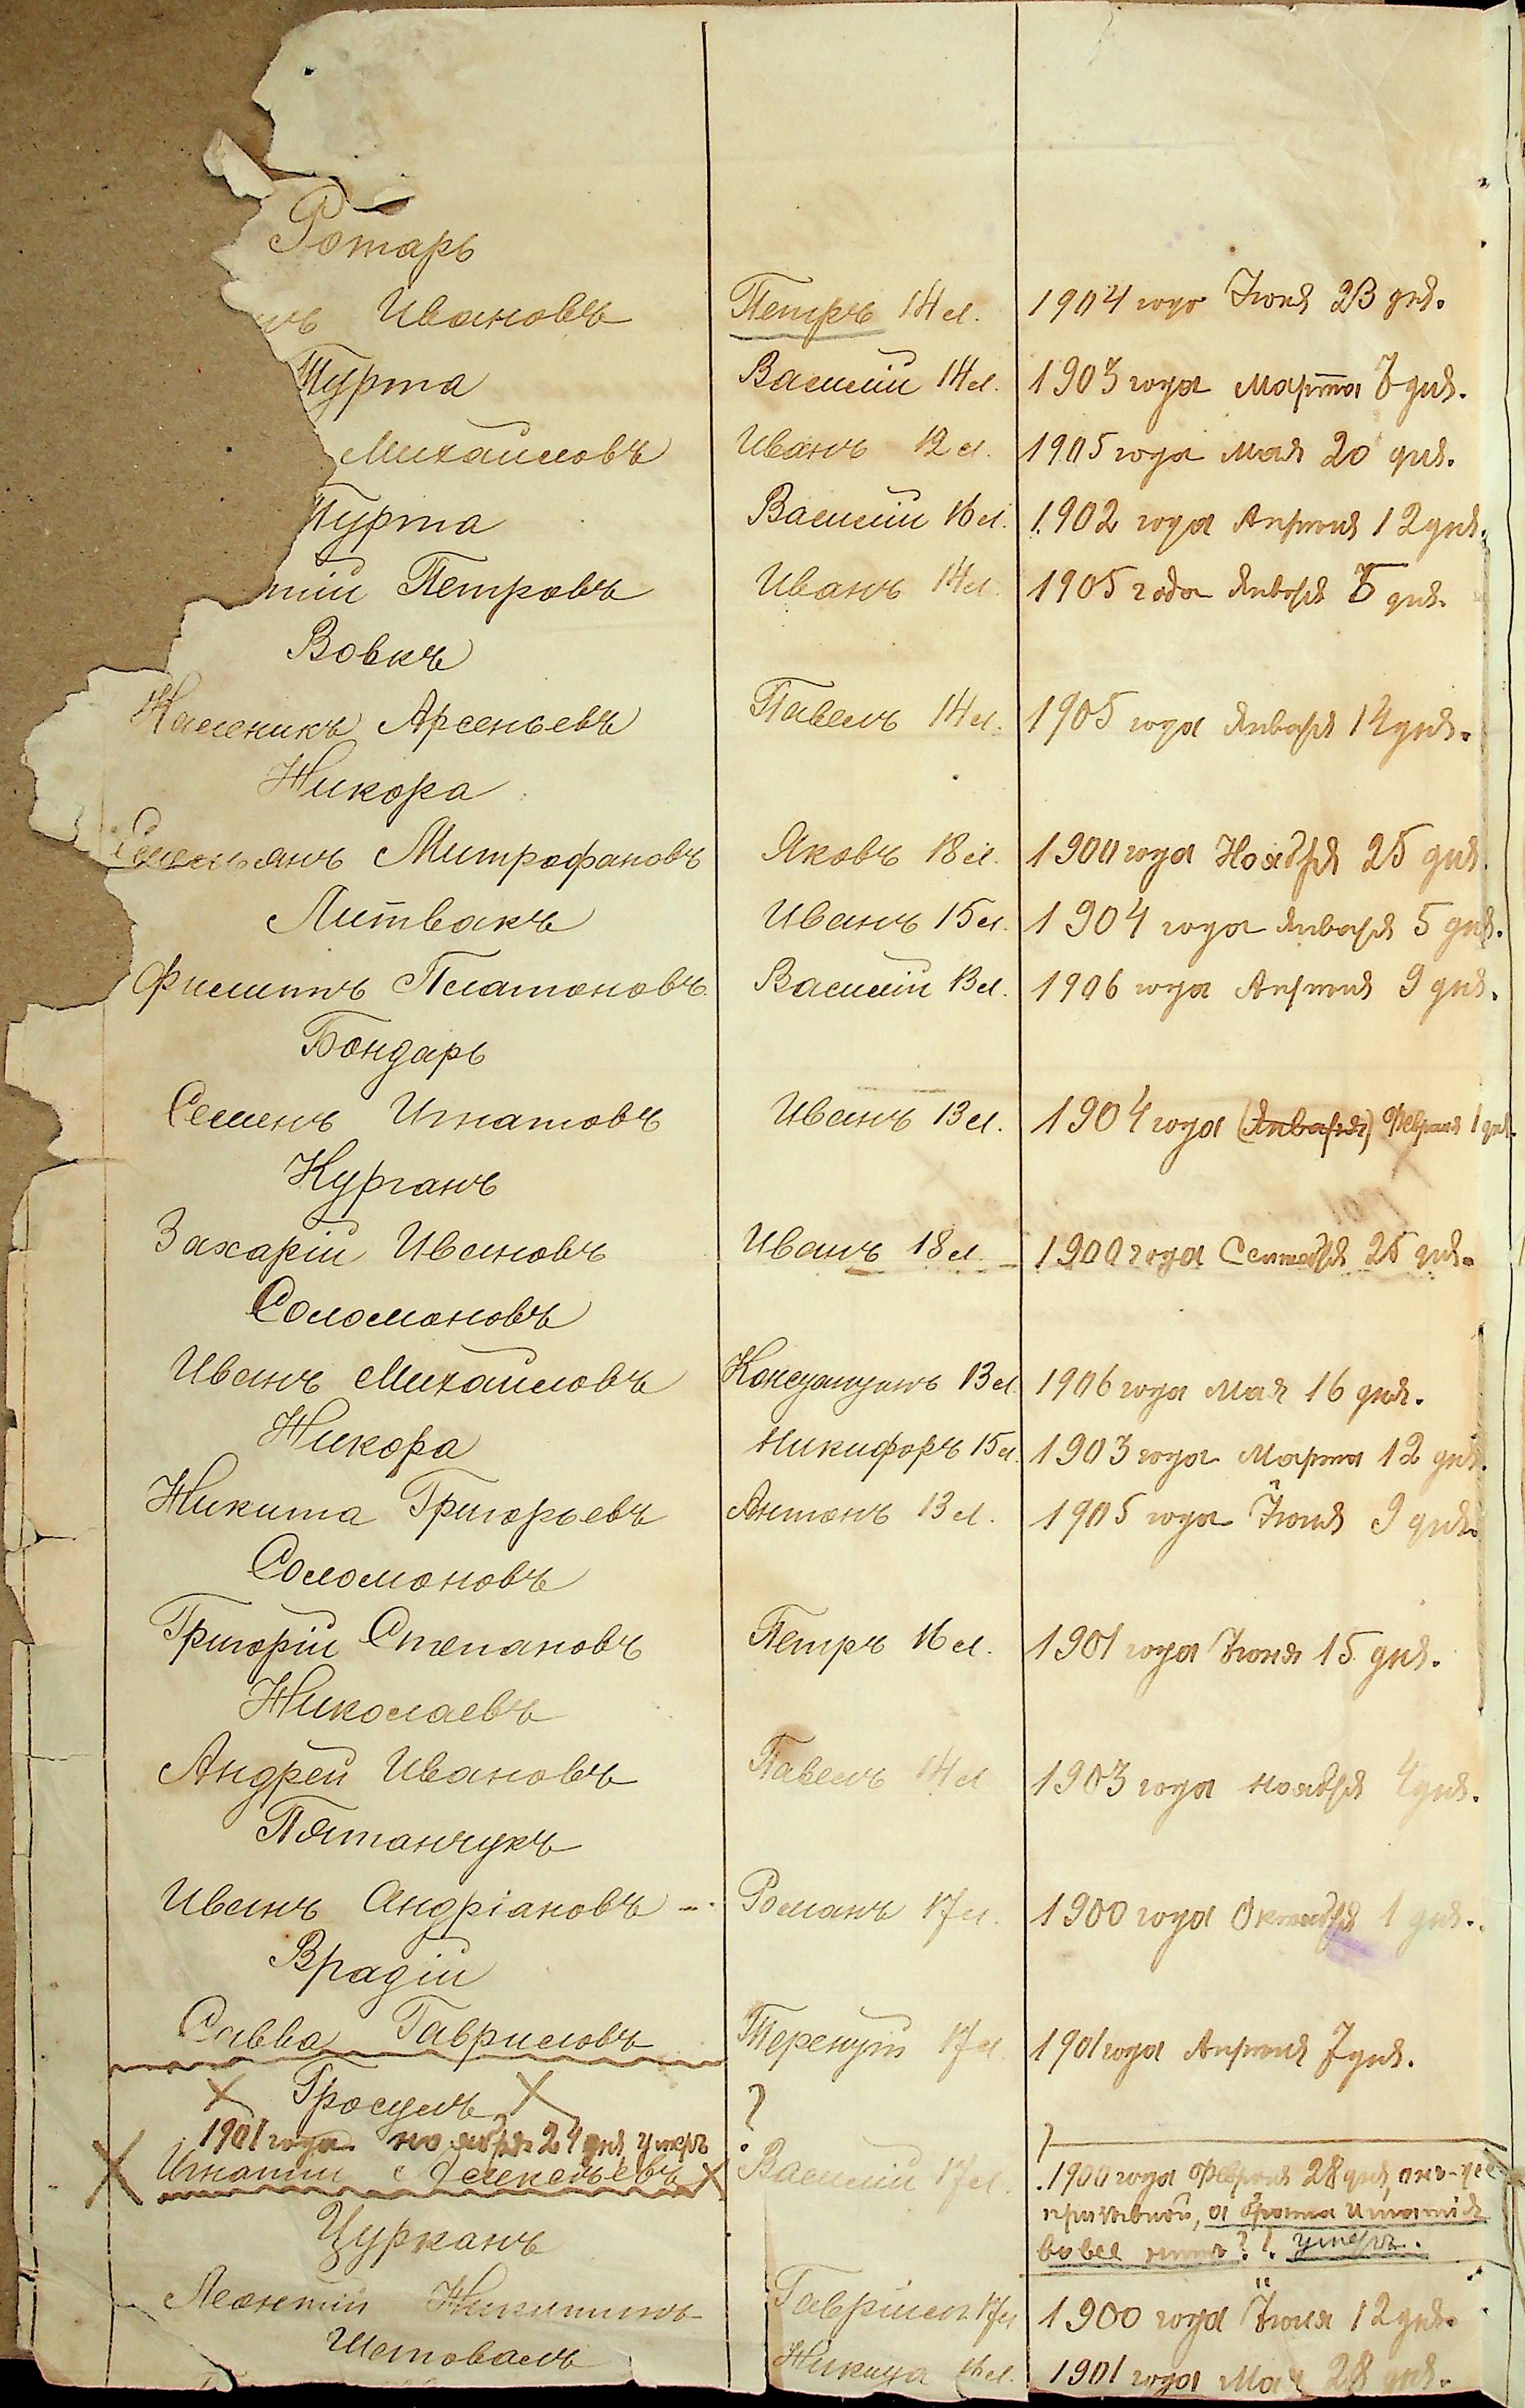 Ротарь
Ивановъ Петръ 14 л. 1904 года Іюня 23 дня.
Цурта Василій 14 л. 1903 года Марта 7 дня.
Михайловъ Иванъ 12 л. 1905 года Мая 20 дня.
Цурта Василій 16 л. 1902 года Апреля 12 дня.
тій Петровъ Иванъ 14 л. 1905 года Января дня.
Вовкъ
Арсеньевъ Павелъ 14 л. 1905 года Января 14 дня.
Никора
Митрофановъ Яковъ 18 л. 1900 года Ноября 25 дня
Литвакъ Иванъ 15 л. 1904 года Января 5 дня.
Филиппъ Платоновъ Василій 13 л. 1906 года Апреля 9 дня.
Бондарь
Семенъ Игнатовъ Иванъ 13 л. 1904 года (Января) Февраля 1 дня.
Курганъ
Захарій Ивановъ Иванъ 18 л. 1900 года Сентября 25 дня.
Соломоновъ
Иванъ Михайловъ Константинъ 13 л 1906 года Мая 16 дня.
Никора Никифоръ 15 л. 1903 года Марта 12 дня.
Никита Григорьевъ Антонъ 13 л. 1905 года Іюня 9 дня.
Соломоновъ
Григорій Степановъ Петръ 16 л. 1901 года Іюня 15 дня.
Николаевъ
Андрей Ивановъ Павелъ 14 л 1903 года ноября 4 дня.
Пятанчукъ
Иванъ Андріановъ Романъ 17 л. 1900 года Октября 1 дня.
Врадій
Савва Гавриловъ Терентій 17 л 1901 года Апреля 7 дня.
Х Гросулъ Х ?
1901 года ноября 24 дня умеръ
Х Игнатій Алексеевъ Х Василій 17 л. 1900 года Февраля 28 дня,
а брата Игнатія
Цурканъ вовсе ?!. умеръ.
Леонтій Никитинъ Гавріилъ 17 л 1900 года Іюня 12 дня.
Шаповалъ Никита 16 л. 1901 года Мая 28 дня.